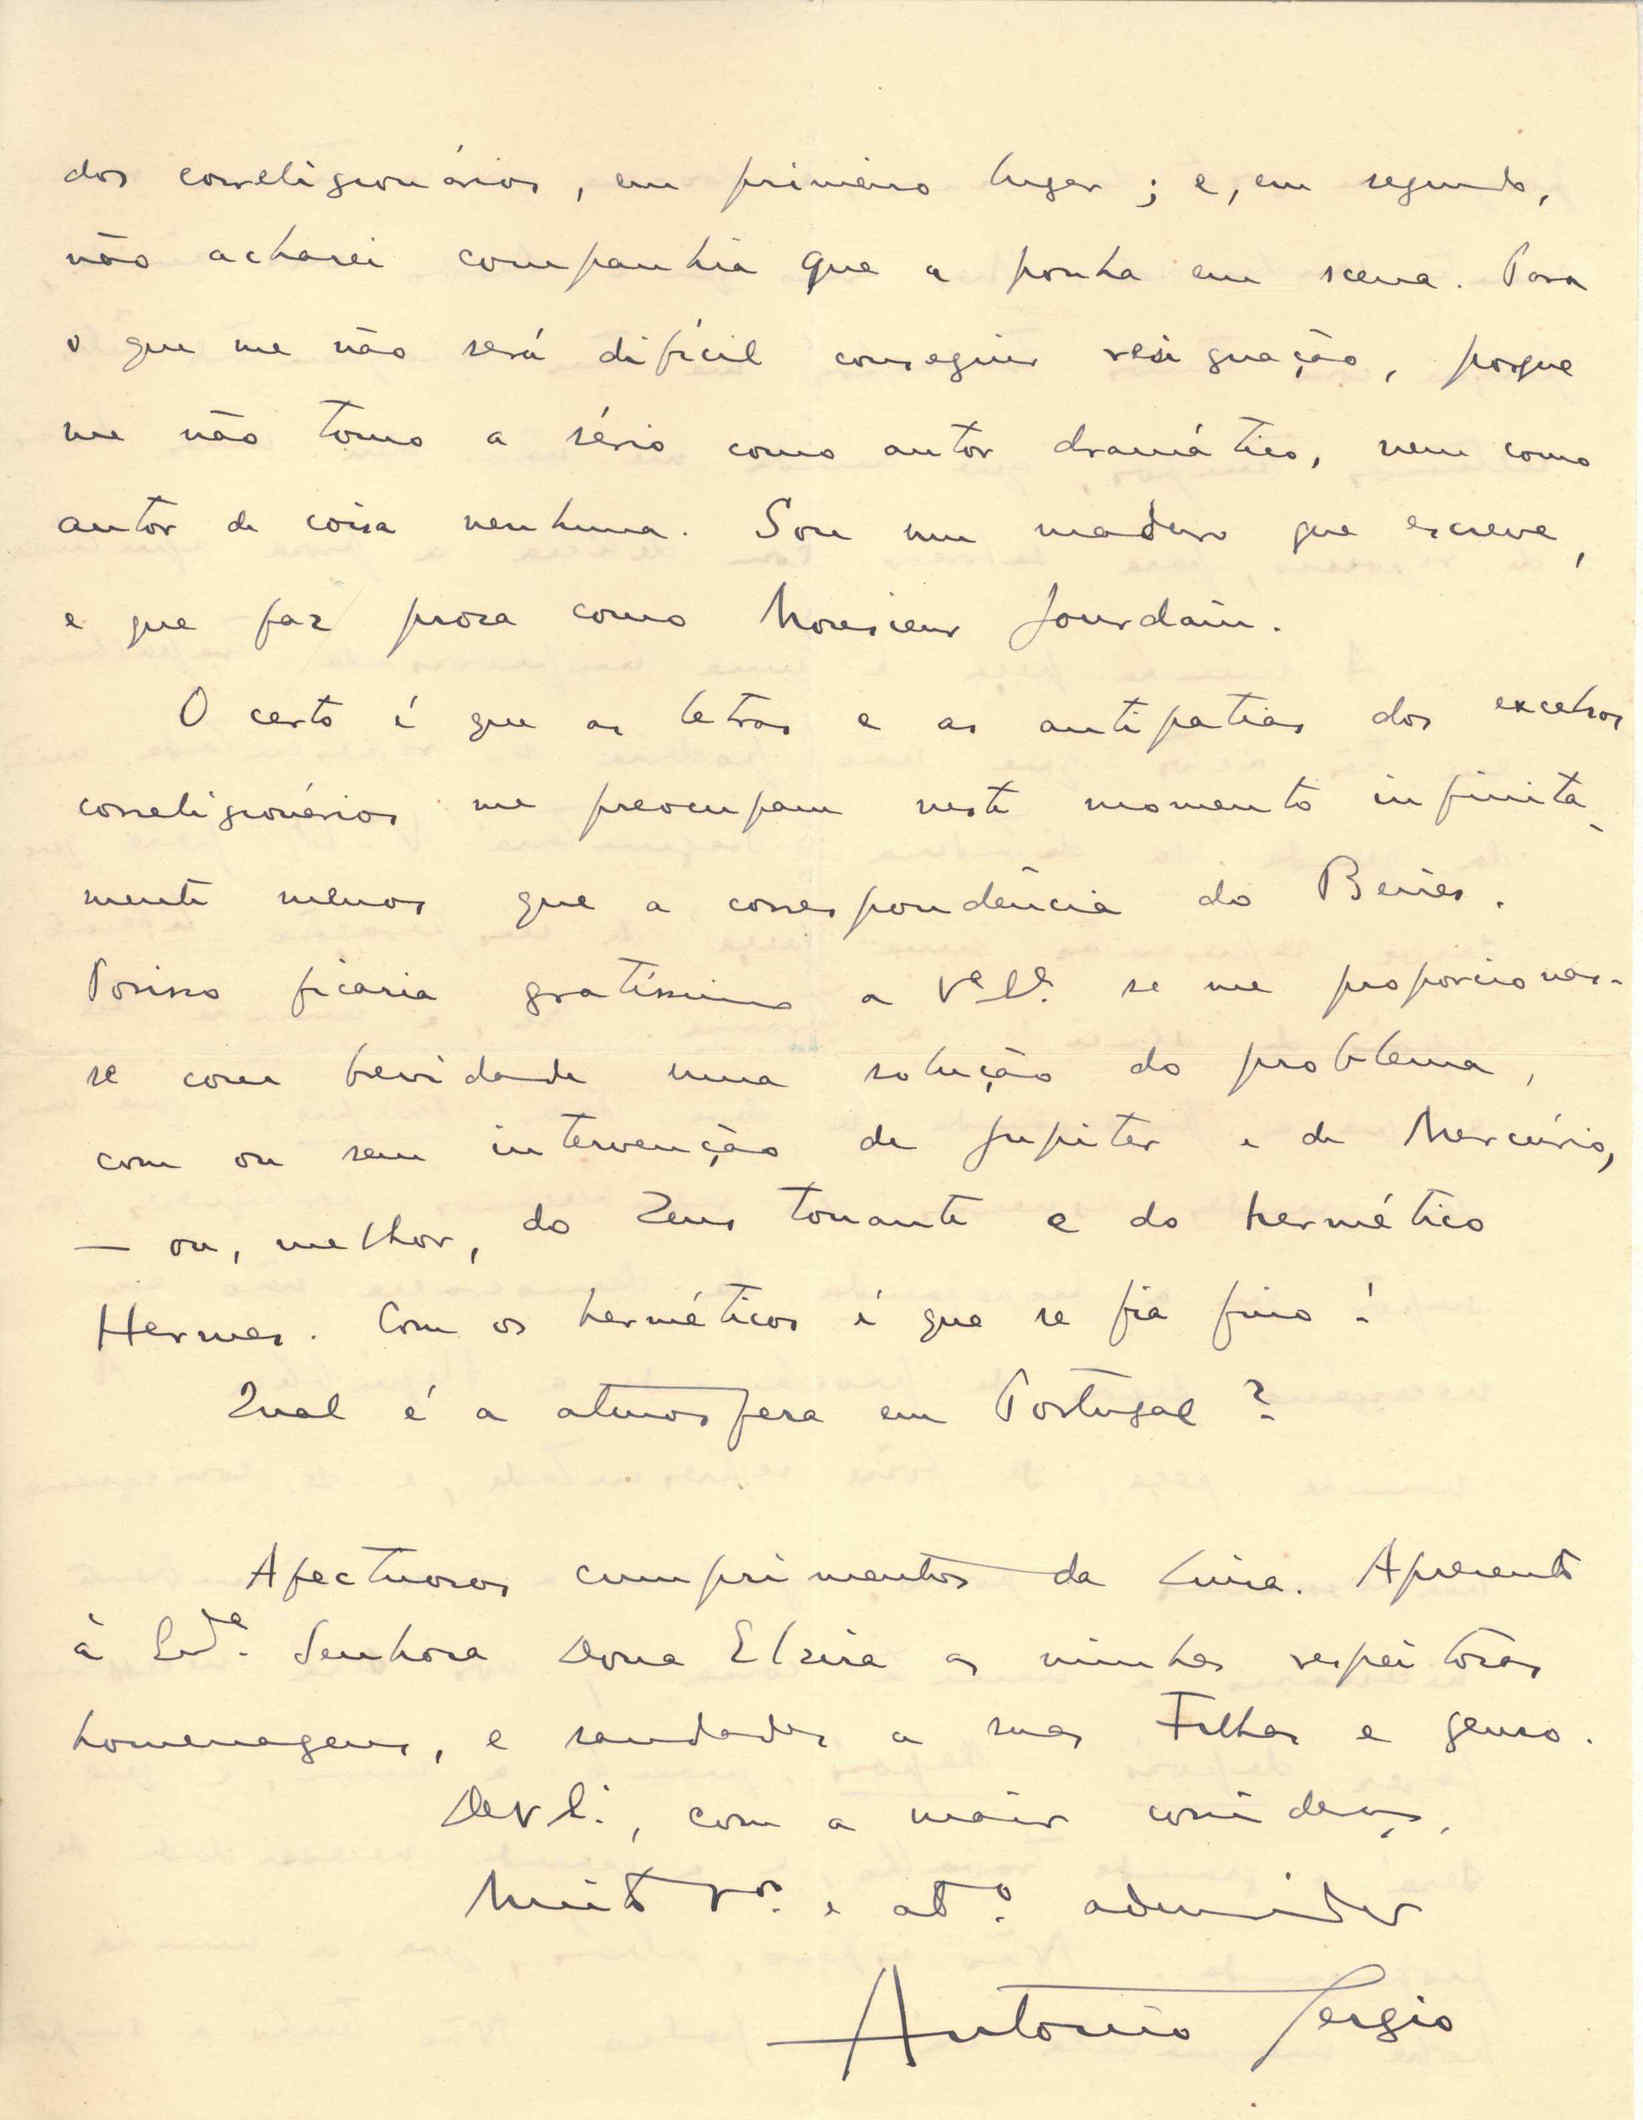 dos correligionários, em primeiro lugar; e, em segundo,
não acharei companhia que a ponha em scena. Para
o que me não será difícil conseguir resignação, porque
me não tomo a sério como autor dramático, nem como
autor de coisa nenhuma. Sou um maduro que escreve,
e que faz prosa como Monsieur Jourdain.
O certo é que as letras e as antipatias dos excelsos
correligionários me preocupam neste momento infinita-
mente menos que a correspondência do
Porisso ficaria gratíssimo a V. Eª. se me proporcionas-
se com brevidade uma solução do problema,
com ou sem intervenção de Jupiter e de Mercúrio,
— ou, melhor, do Zeus tonante e do hermético
Hermes. Com os herméticos é que se fia fino!
Qual é a atmosfera em Portugal?
Afectuosos cumprimentos da Luisa. Apresento
à Exª. Senhora Dona Elzira as minhas respeitosas
homenagens, e saudades a suas Filhas e genro.
De V. E., com a maior consideraç.,
Muito e atº. admirador
Antonio Sergio